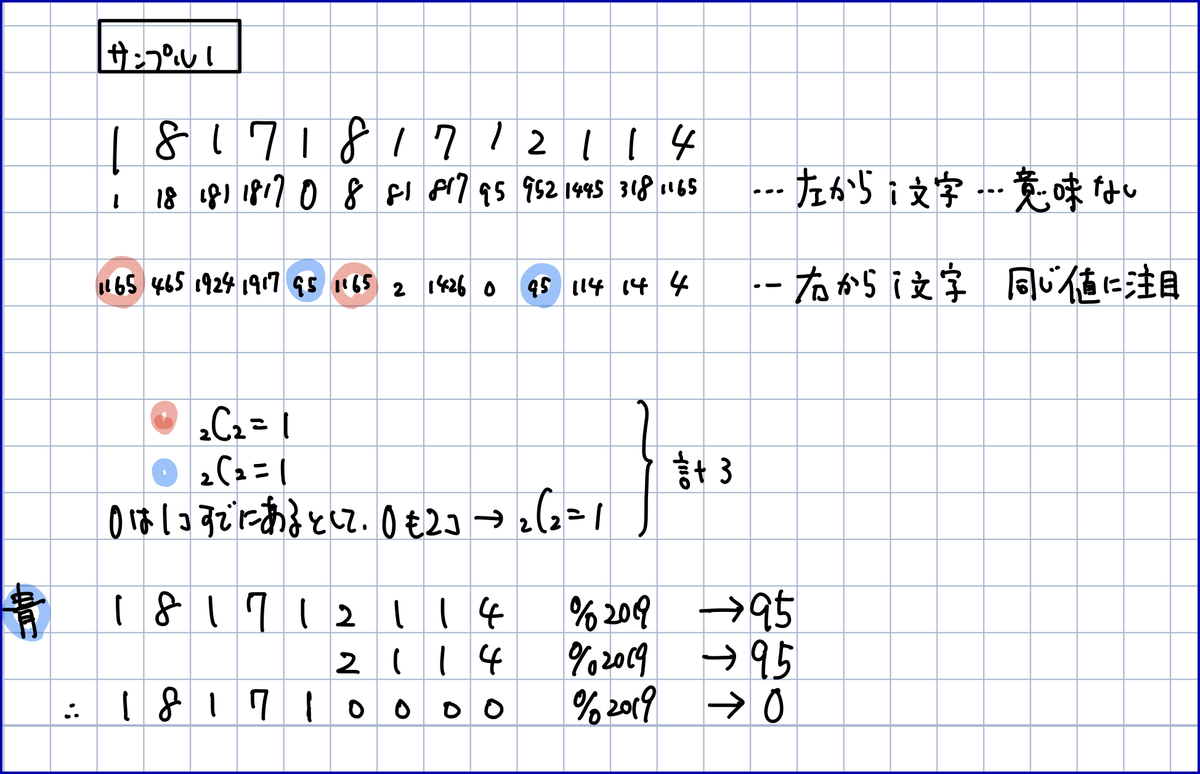 サンプル1
1 8 1 7 1 8 1 7 1 2 1 1 4
1 18 181 1817 0 8 81 817 95 952 1445 318 1165 … 左から i 文字 … 意味なし
1165 465 1924 1917 95 1165 2 1426 0 95 114 14 4 … 右から i 文字 同じ値に注目
₂C₂ = 1
₂C₂ = 1
0は1コすでにあるとして、0も2コ → ₂C₂ = 1
計3
青 1 8 1 7 1 2 1 1 4 % 2019 → 95
2 1 1 4 % 2019 → 95
∴ 1 8 1 7 1 0 0 0 0 % 2019 → 0